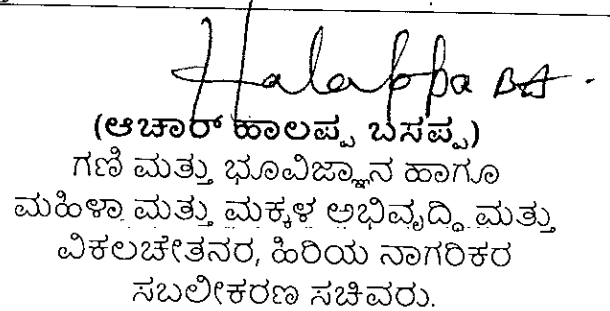 Halappa BA.
(ಆಚಾರ್ ಹಾಲಪ್ಪ ಬಸಪ್ಪ)
ಗಣಿ ಮತ್ತು ಭೂವಿಜ್ಞಾನ ಹಾಗೂ
ಮಹಿಳಾ ಮತ್ತು ಮಕ್ಕಳ ಅಭಿವೃದ್ಧಿ ಮತ್ತು
ವಿಕಲಚೇತನರ, ಹಿರಿಯ ನಾಗರಿಕರ
ಸಬಲೀಕರಣ ಸಚಿವರು.